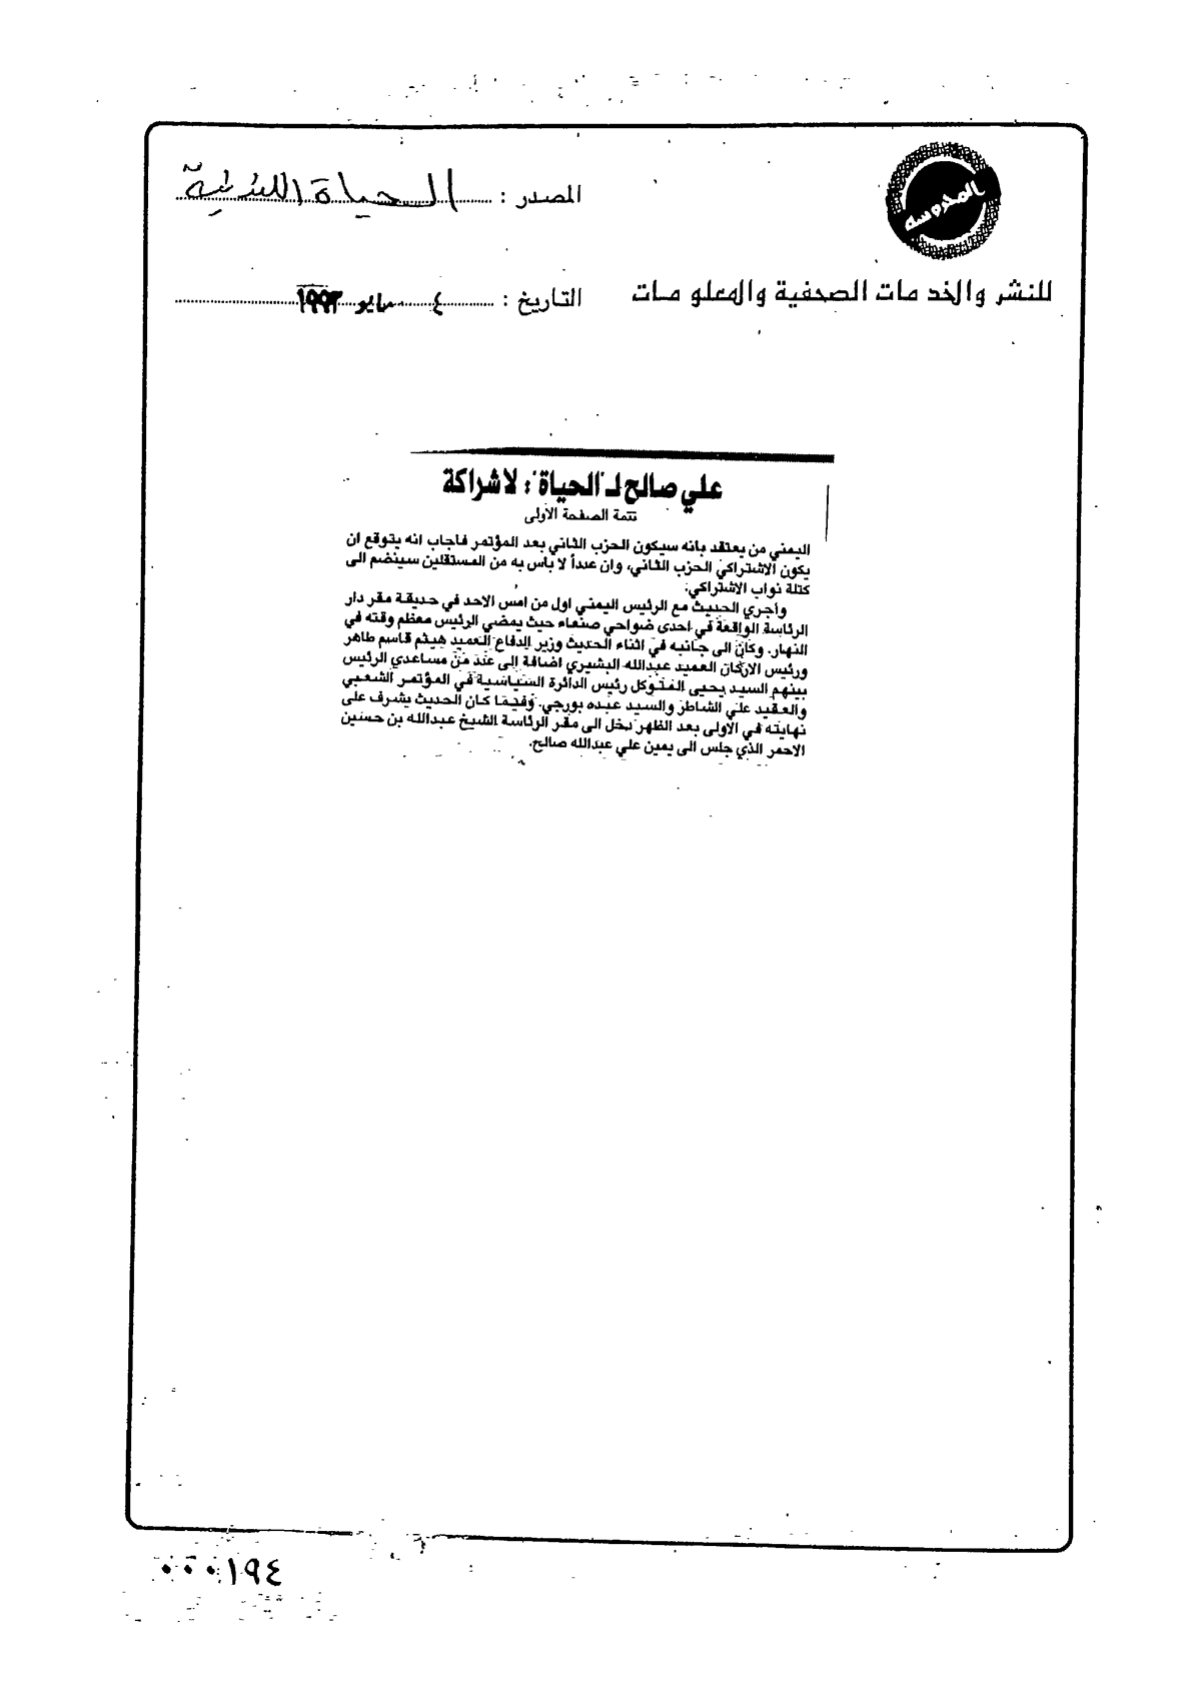 المحروسه
المصدر : الحياة اللندنية
للنشر والخدمات الصحفية والمعلومات
التاريخ : ٤ مايو ١٩٩٣
علي صالح لـ"الحياة": لا شراكة
تتمة الصفحة الأولى
اليمني من يعتقد بانه سيكون الحزب الثاني بعد المؤتمر فاجاب انه يتوقع ان
يكون الاشتراكي الحزب الثاني، وان عدداً لا باس به من المستقلين سينضم الى
كتلة نواب الاشتراكي.
واجري الحديث مع الرئيس اليمني اول من امس الاحد في حديقة مقر دار
الرئاسة الواقعة في احدى ضواحي صنعاء حيث يمضي الرئيس معظم وقته في
النهار. وكان الى جانبه في اثناء الحديث وزير الدفاع العميد هيثم قاسم طاهر
ورئيس الاركان العميد عبدالله البشيري اضافة إلى عدد من مساعدي الرئيس
بينهم السيد يحيى المتوكل رئيس الدائرة السياسية في المؤتمر الشعبي
والعقيد علي الشاطر والسيد عبده بورجي. وفيما كان الحديث يشرف على
نهايته في الاولى بعد الظهر دخل الى مقر الرئاسة الشيخ عبدالله بن حسين
الاحمر الذي جلس الى يمين علي عبدالله صالح.
٠٠٠١٩٤